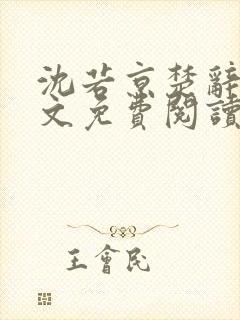 沈若京楚辭
文免費閱讀
王會民